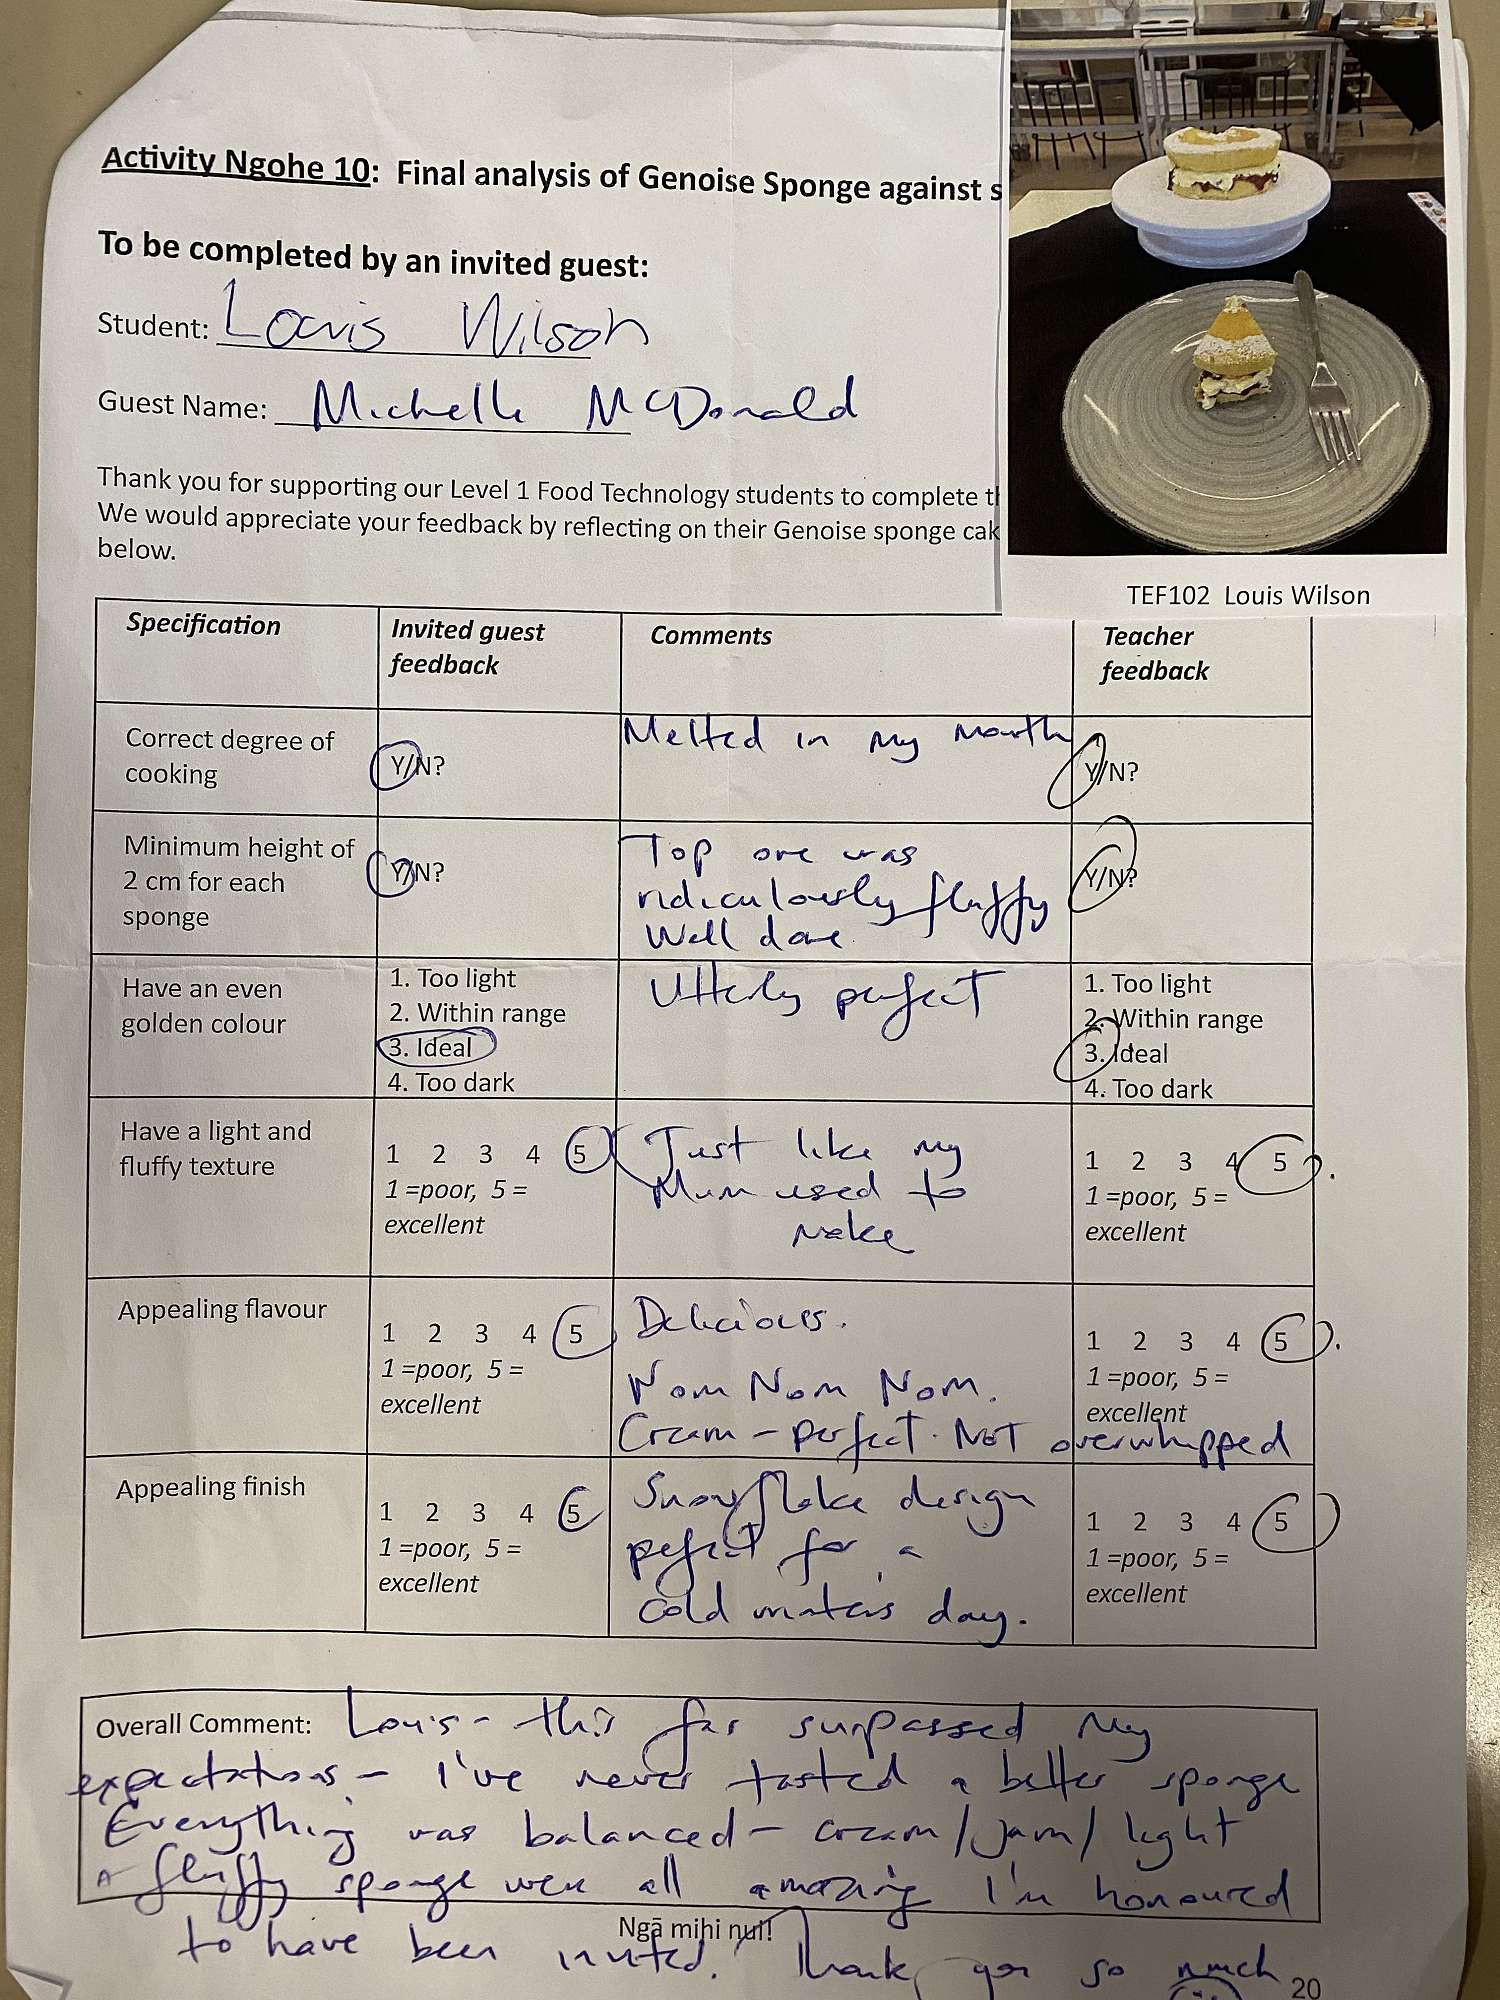 Activity Ngohe 10: Final analysis of Genoise Sponge against s
To be completed by an invited guest:
Student: Louis Wilson
Guest Name: Michelle McDonald
Thank you for supporting our Level 1 Food Technology students to complete th
We would appreciate your feedback by reflecting on their Genoise sponge cak
below.
TEF102 Louis Wilson
Specification
Invited guest
feedback
Comments
Teacher
feedback
Correct degree of
cooking
Y/N?
Melted in my mouth
Y/N?
Minimum height of
2 cm for each
sponge
Y/N?
Top one was
ridiculously fluffy
Well done
Y/N?
Have an even
golden colour
1. Too light
2. Within range
3. Ideal
4. Too dark
Utterly perfect
1. Too light
2. Within range
3. Ideal
4. Too dark
Have a light and
fluffy texture
1 2 3 4 5
1 =poor, 5 =
excellent
Just like my
Mum used to
make
1 2 3 4 5
1 =poor, 5 =
excellent
Appealing flavour
1 2 3 4 5
1 =poor, 5 =
excellent
Delicious.
Nom Nom Nom.
Cream - perfect. NOT overwhipped
1 2 3 4 5
1 =poor, 5 =
excellent
Appealing finish
1 2 3 4 5
1 =poor, 5 =
excellent
Snowflake design
pefect for a
cold winters day.
1 2 3 4 5
1 =poor, 5 =
excellent
Overall Comment: Louis - this far surpassed my
expectations - I've never tasted a better sponge
Everything was balanced - cream/jam/light
fluffy sponge were all amazing I'm honoured
to have been invited. Thank you so much
Ngā mihi nui!
20